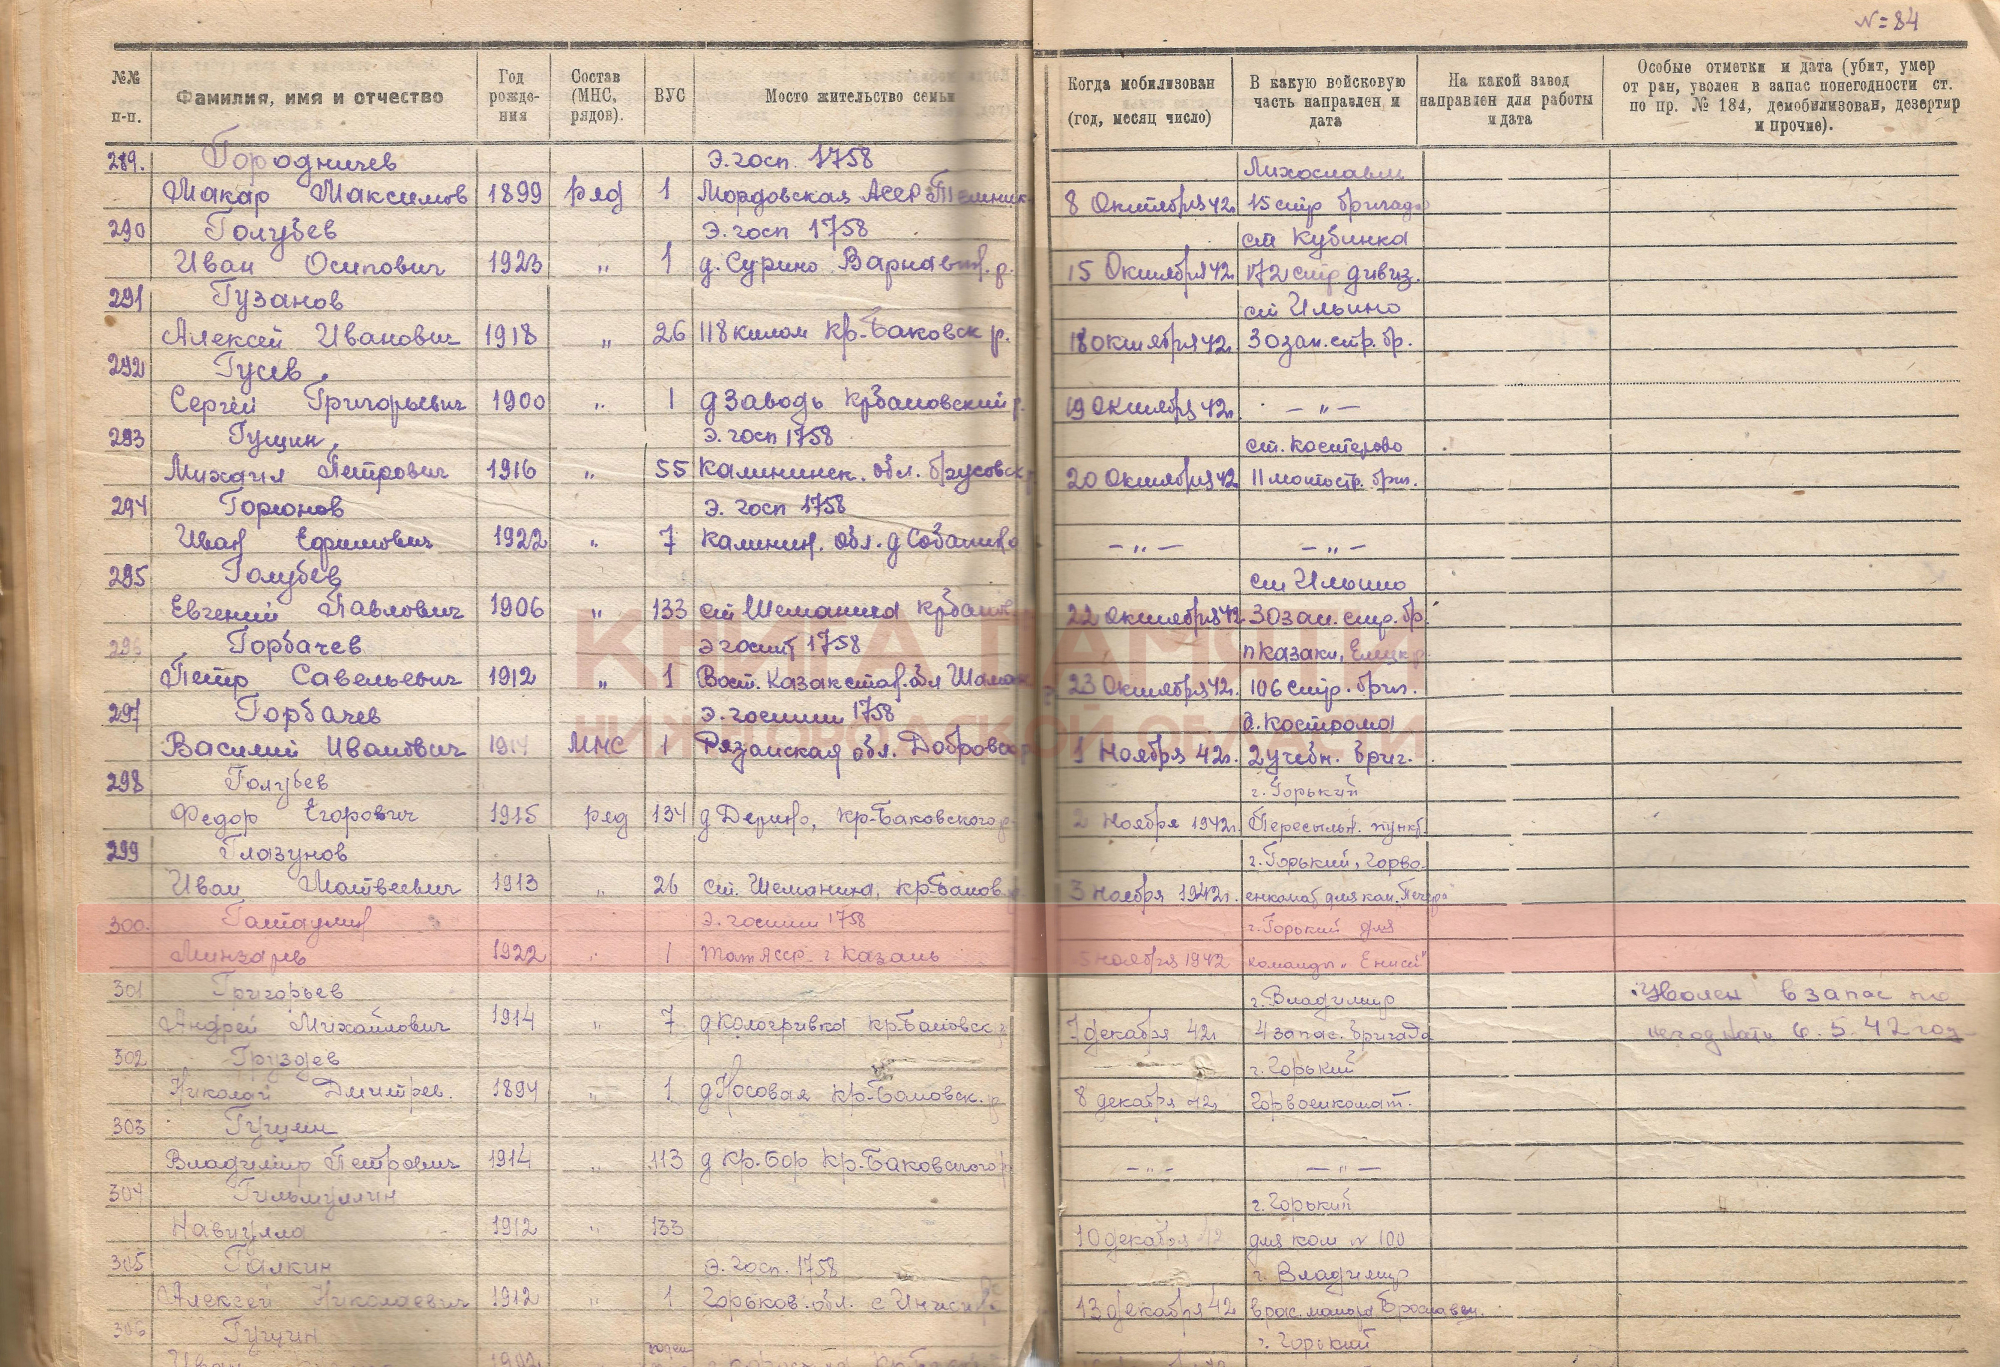 N=84
№№ п-п.
Фамилия, имя и отчество
Год рожде- ния
Состав (МНС, рядов).
ВУС
Место жительство семьи
Когда мобилизован (год, месяц число)
В какую войсковую часть направлен и дата
На какой завод направлен для работы и дата
Особые отметки и дата (убит, умер от ран, уволен в запас понегодности ст. по пр. № 184, демобилизован, дезертир и прочие).
289. Городничев Э. госп. 1758 Лихославль
Макар Максимов 1899 ряд 1 Мордовская АССР 8 Октября 42г. 15 стр бригада
290 Голубев Э. госп 1758 ст Кубинка
Иван Осипович 1923 „ 1 д. Сурино Варнавин. р. 15 Октября 42г. 172 стр дивиз.
291 Гузанов ст Ильино
Алексей Иванович 1918 „ 26 118 килом Кр-Баковск р. 18 октября 42г. 30 зап. стр. бр.
292 Гусев
Сергей Григорьевич 1900 „ 1 д Заводь Крбаковский р. 19 Октября 42г. — „ —
293 Гущин Э. госп 1758 ст. Костерово
Михаил Петрович 1916 „ 55 Калининск. обл. 20 Октября 42 11 мотостр. бриг.
294 Горюнов Э. госп 1758
Иван Ефимович 1922 „ 7 Калинин. обл. д — „ — — „ —
295 Голубев ст Ильино
Евгений Павлович 1906 „ 133 ст Шеманиха Крбаков 22 октября 42 30 зап. стр. бр.
296 Горбачев э госпит 1758 п Казаки, Елецк р.
Петр Савельевич 1912 „ 1 Вост. Казахстан. обл 23 Октября 42г. 106 стр. бриг.
297 Горбачев э. госпит 1758 г. Кострома
Василий Иванович 1914 МНС 1 Рязанская обл. 1 Ноября 42г. 2 учебн. бриг.
298 Голубев г. Горький
Федор Егорович 1915 ряд 134 д Дерино, Кр-Баковского р. 2 Ноября 1942г. Пересыльн. пункт
299 Глазунов г. Горький, Горво-
Иван Матвеевич 1913 „ 26 ст. Шеманиха, Кр-Баков. р. 3 Ноября 1942г. енкомат для ком.
300. э. госпит 1758 г. Горький для
1922 „ 1 Тат АССР г. Казань 5 Ноября 1942 команды „Енисей"
301 Григорьев г. Владимир Уволен в запас по
Андрей Михайлович 1914 „ 7 д Кологривка Кр.Баковск. р 7 декабря 42г. 4 запас. бригада 6.5.42 год
302 Груздев г. Горький
Николай Дмитрев. 1894 „ 1 д Носовая Кр-Баковск. р 8 декабря 42г. Горвоенкомат.
303 Гущин
Владимир Петрович 1914 „ 113 д Кр. Бор Кр. Баковского р — „ — — „ —
304 Гильмуллин г. Горький
1912 „ 133 10 декабря 42 для ком N 100
305 Галкин Э. госп. 1758 г. Владимир
Алексей Николаевич 1912 „ 1 Горьков. обл. с 13 декабря 42
306 Гущин г. Горький
Иван
КНИГА ПАМЯТИ
НИЖЕГОРОДСКОЙ ОБЛАСТИ